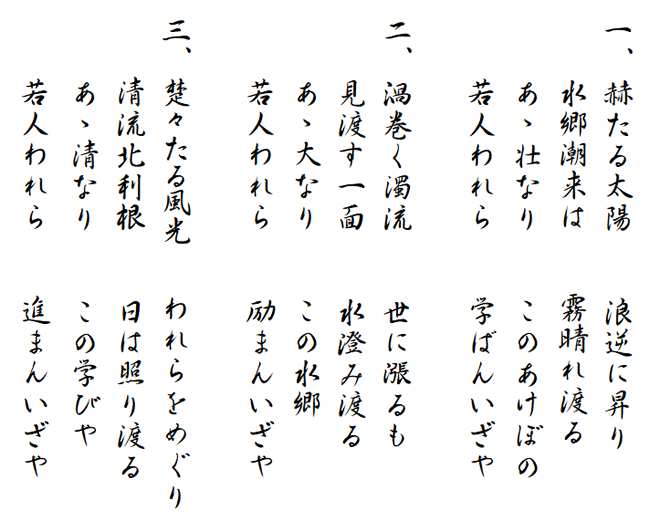 一、
赫たる太陽　浪逆に昇り
水郷潮来は　霧晴れ渡る
あゝ壮なり　このあけぼの
若人われら　学ばんいざや
二、
渦巻く濁流　世に漲るも
見渡す一面　水澄み渡る
あゝ大なり　この水郷
若人われら　励まんいざや
三、
楚々たる風光　われらをめぐり
清流北利根　日は照り渡る
あゝ清なり　この学びや
若人われら　進まんいざや